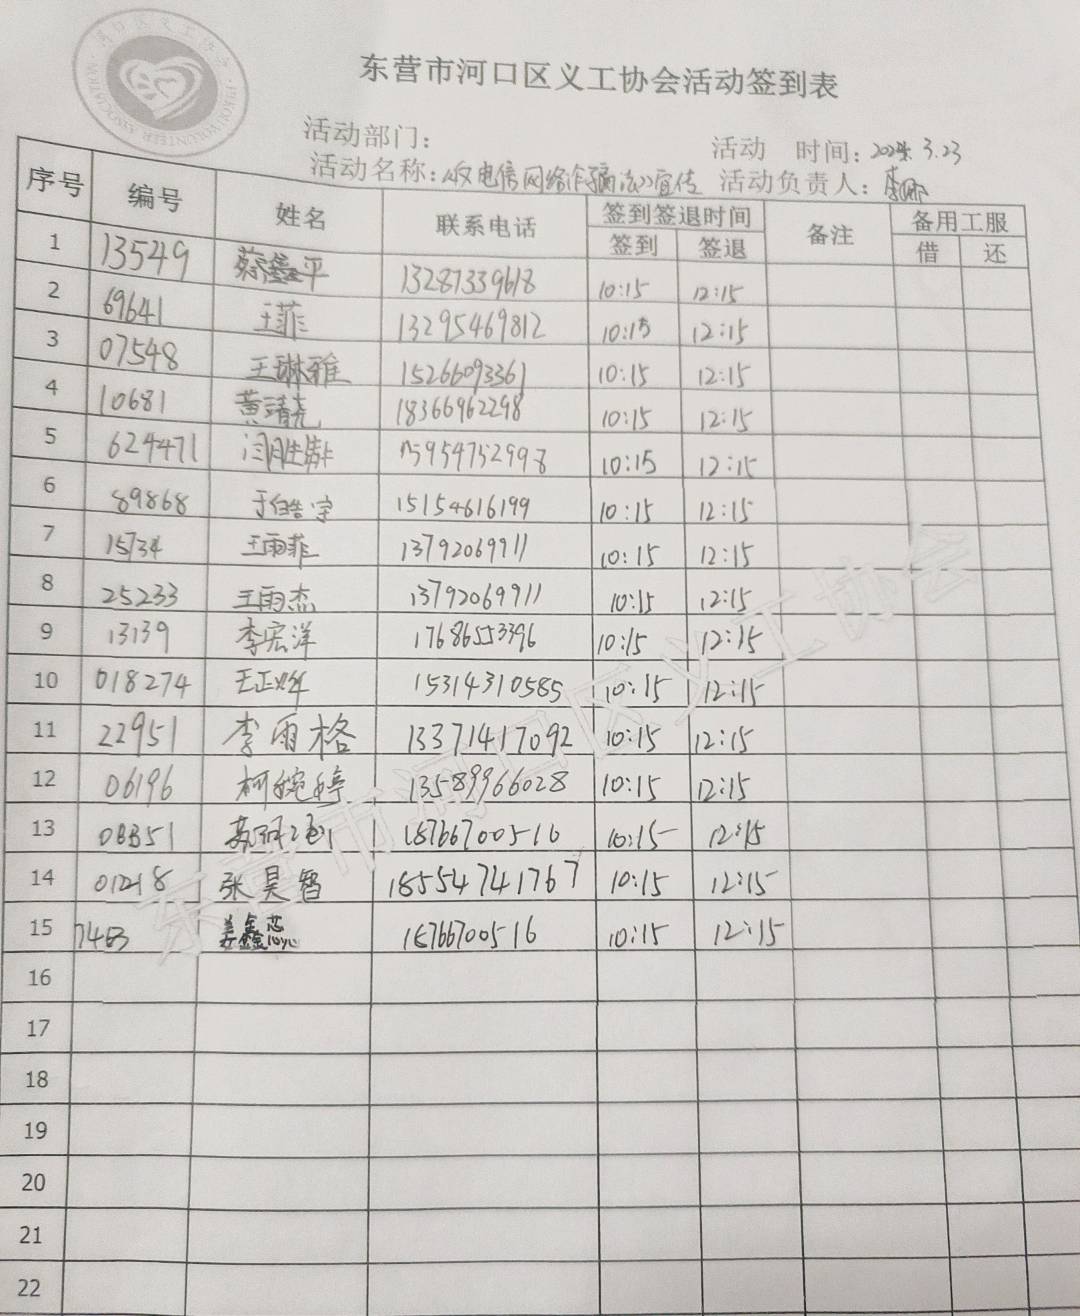 东营市河口区义工协会活动签到表
活动部门：
活动 时间：2024.3.23
活动名称：《反电信网络诈骗法》宣传 活动负责人：李娜
序号 编号 姓名 联系电话 签到签退时间 备注 备用工服
签到 签退 借 还
1 13549 蔡鑫平 13287339618 10:15 12:15
2 69641 王菲 13295469812 10:15 12:15
3 07548 王琳雅 15266093361 10:15 12:15
4 10681 黄靖尧 18366962298 10:15 12:15
5 624471 10:15 12:15
6 89868 于皓宇 15154616199 10:15 12:15
7 15734 王雨菲 13792069911 10:15 12:15
8 25233 王雨杰 13792069911 10:15 12:15
9 13139 李宏洋 17686553396 10:15 12:15
10 018274 15314310585 10:15 12:15
11 22951 李雨格 13371417092 10:15 12:15
12 06196 柯婉婷 13589966028 10:15 12:15
13 08351 18766700516 10:15 12:15
14 01218 张昊智 18554741767 10:15 12:15
15 姜鑫芯 18766700516 10:15 12:15
16
17
18
19
20
21
22
东营市河口区义工协会